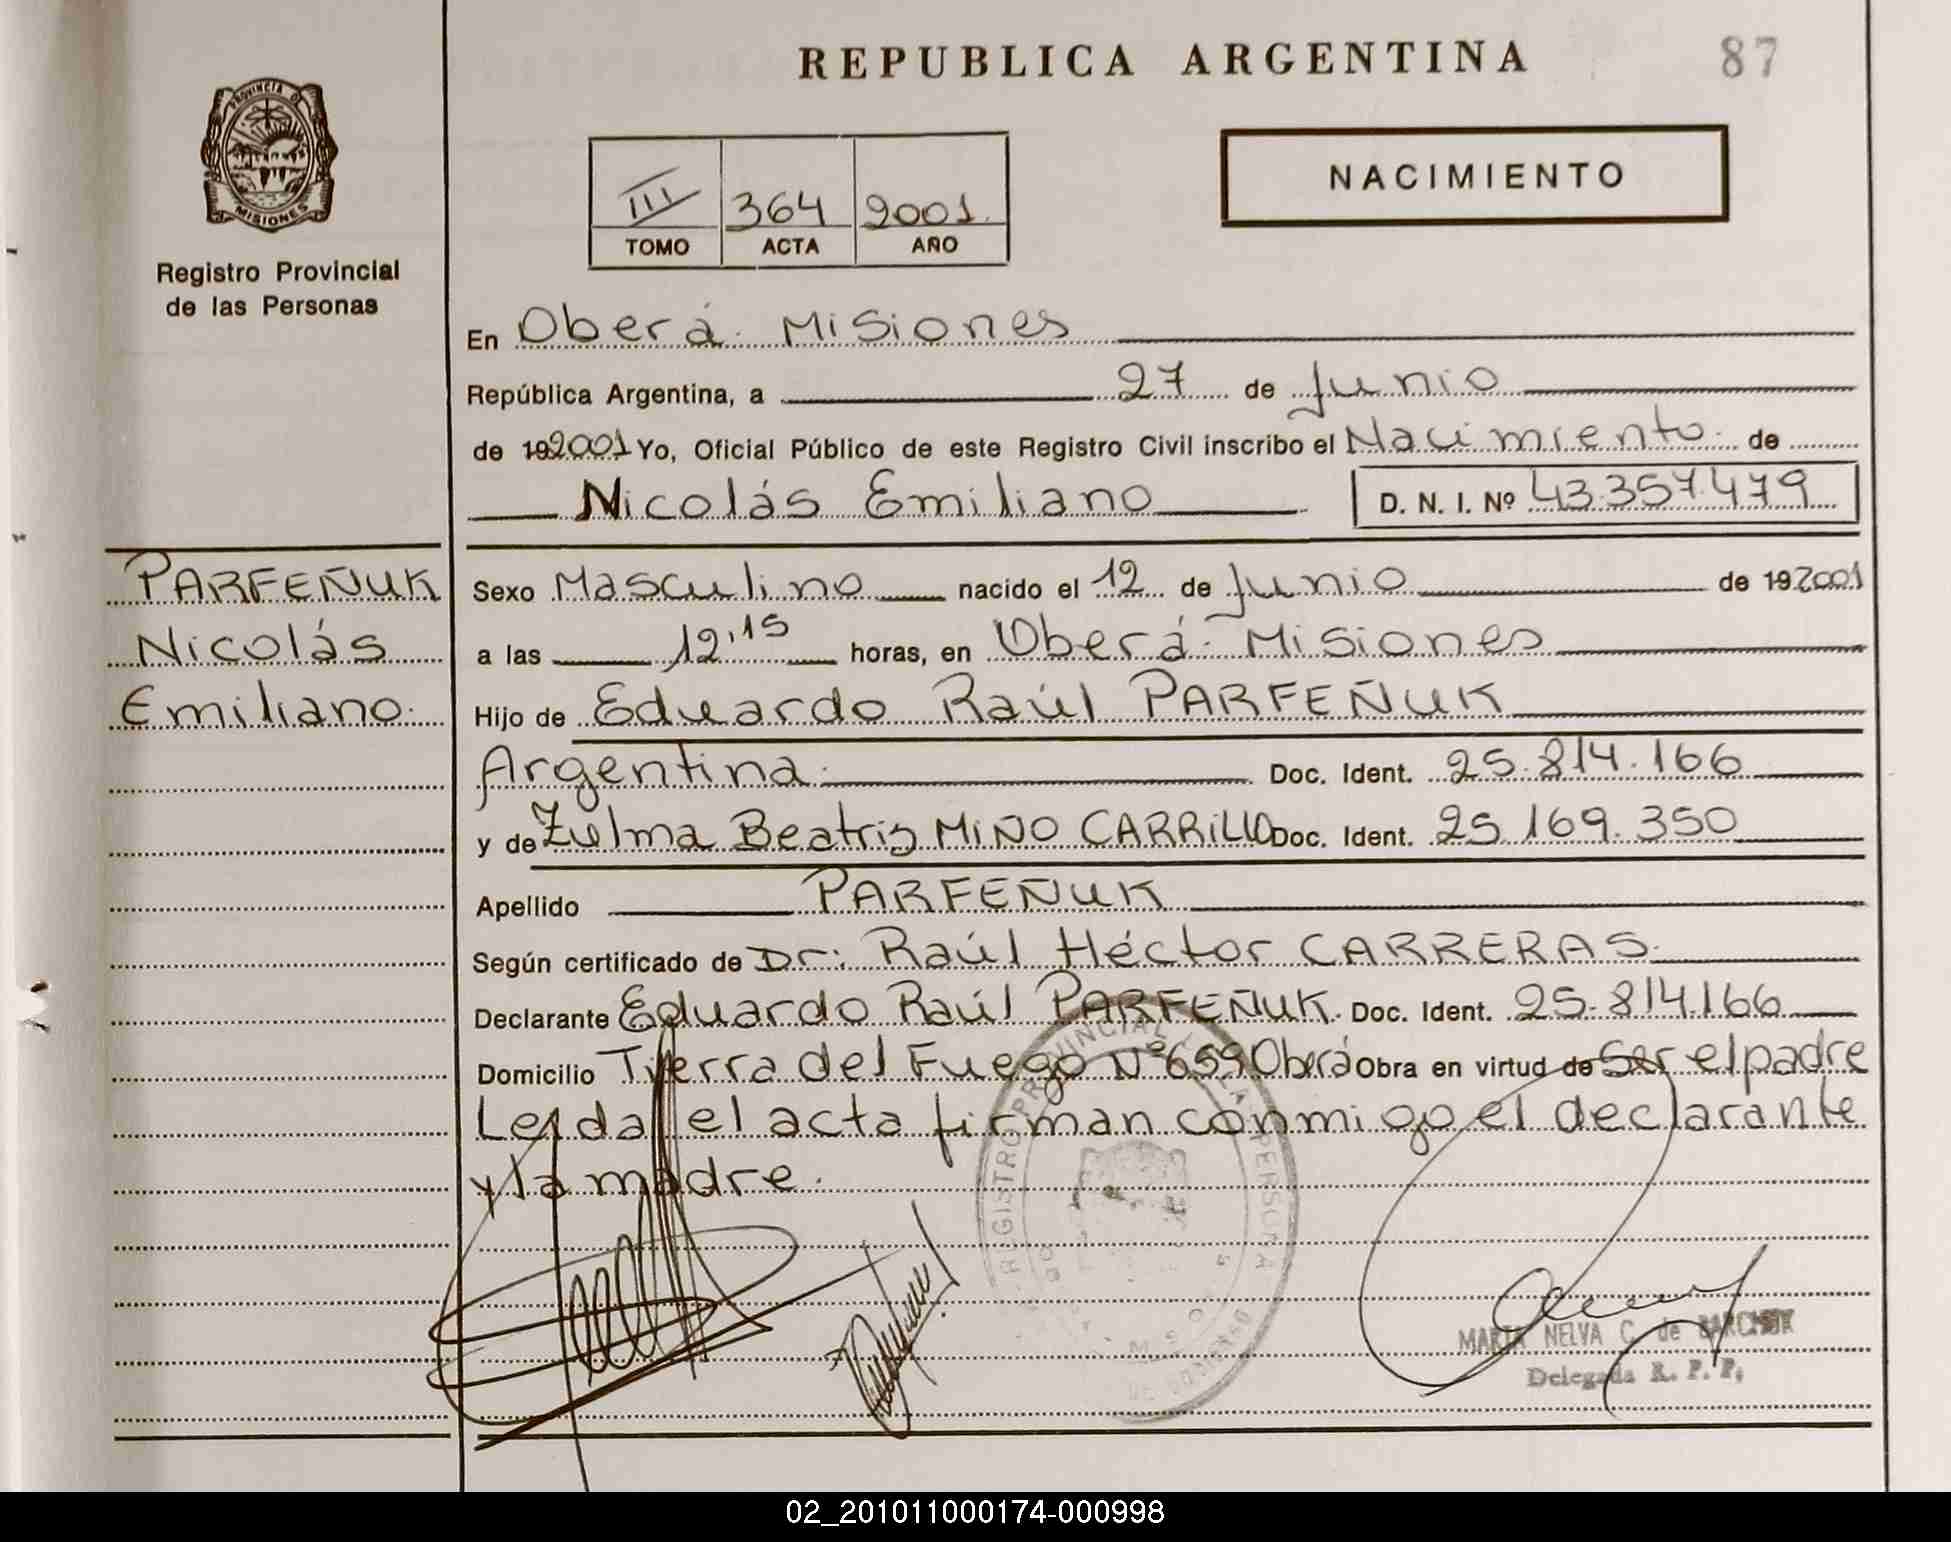 REPUBLICA ARGENTINA
87
PROVINCIA DE
MISIONES
Registro Provincial
de las Personas
NACIMIENTO
III 364 2001
TOMO ACTA AÑO
En Oberá. Misiones
República Argentina, a 27 de Junio
de 192001 Yo, Oficial Público de este Registro Civil inscribo el Nacimiento de
Nicolás Emiliano D. N. I. Nº 43.357.479
PARFEÑUK
Nicolás
Emiliano.
Sexo Masculino nacido el 12 de Junio de 192001
a las 12,15 horas, en Oberá. Misiones
Hijo de Eduardo Raúl PARFEÑUK
Argentina. Doc. Ident. 25.814.166
y de Zulma Beatriz MIÑO CARRILLO Doc. Ident. 25.169.350
Apellido PARFEÑUK
Según certificado de Dr: Raúl Héctor CARRERAS.
Declarante Eduardo Raúl PARFEÑUK. Doc. Ident. 25.814.166
Domicilio Tierra del Fuego Nº 659 Oberá Obra en virtud de Ser el padre
Leída el acta firman conmigo el declarante
y la madre.
REGISTRO PROVINCIAL DE LAS PERSONAS
MARIA NELVA C. de
Delegada R. P. P.
02_201011000174-000998